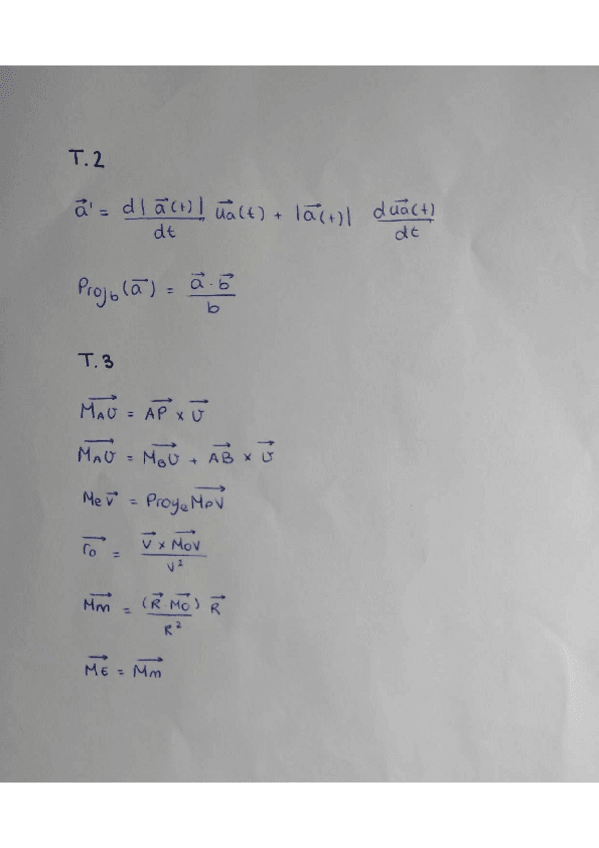 T.2
a⃗' = d|a⃗(t)|/dt u⃗a(t) + |a⃗(t)| du⃗a(t)/dt
Projb(a⃗) = a⃗·b⃗/b
T.3
M⃗Av⃗ = AP⃗ × v⃗
M⃗Av⃗ = M⃗Bv⃗ + AB⃗ × v⃗
Mev⃗ = ProyeM⃗pv⃗
r⃗o = v⃗ × M⃗ov⃗/v²
M⃗m = (R⃗·M⃗o)/R² R⃗
M⃗E = M⃗m